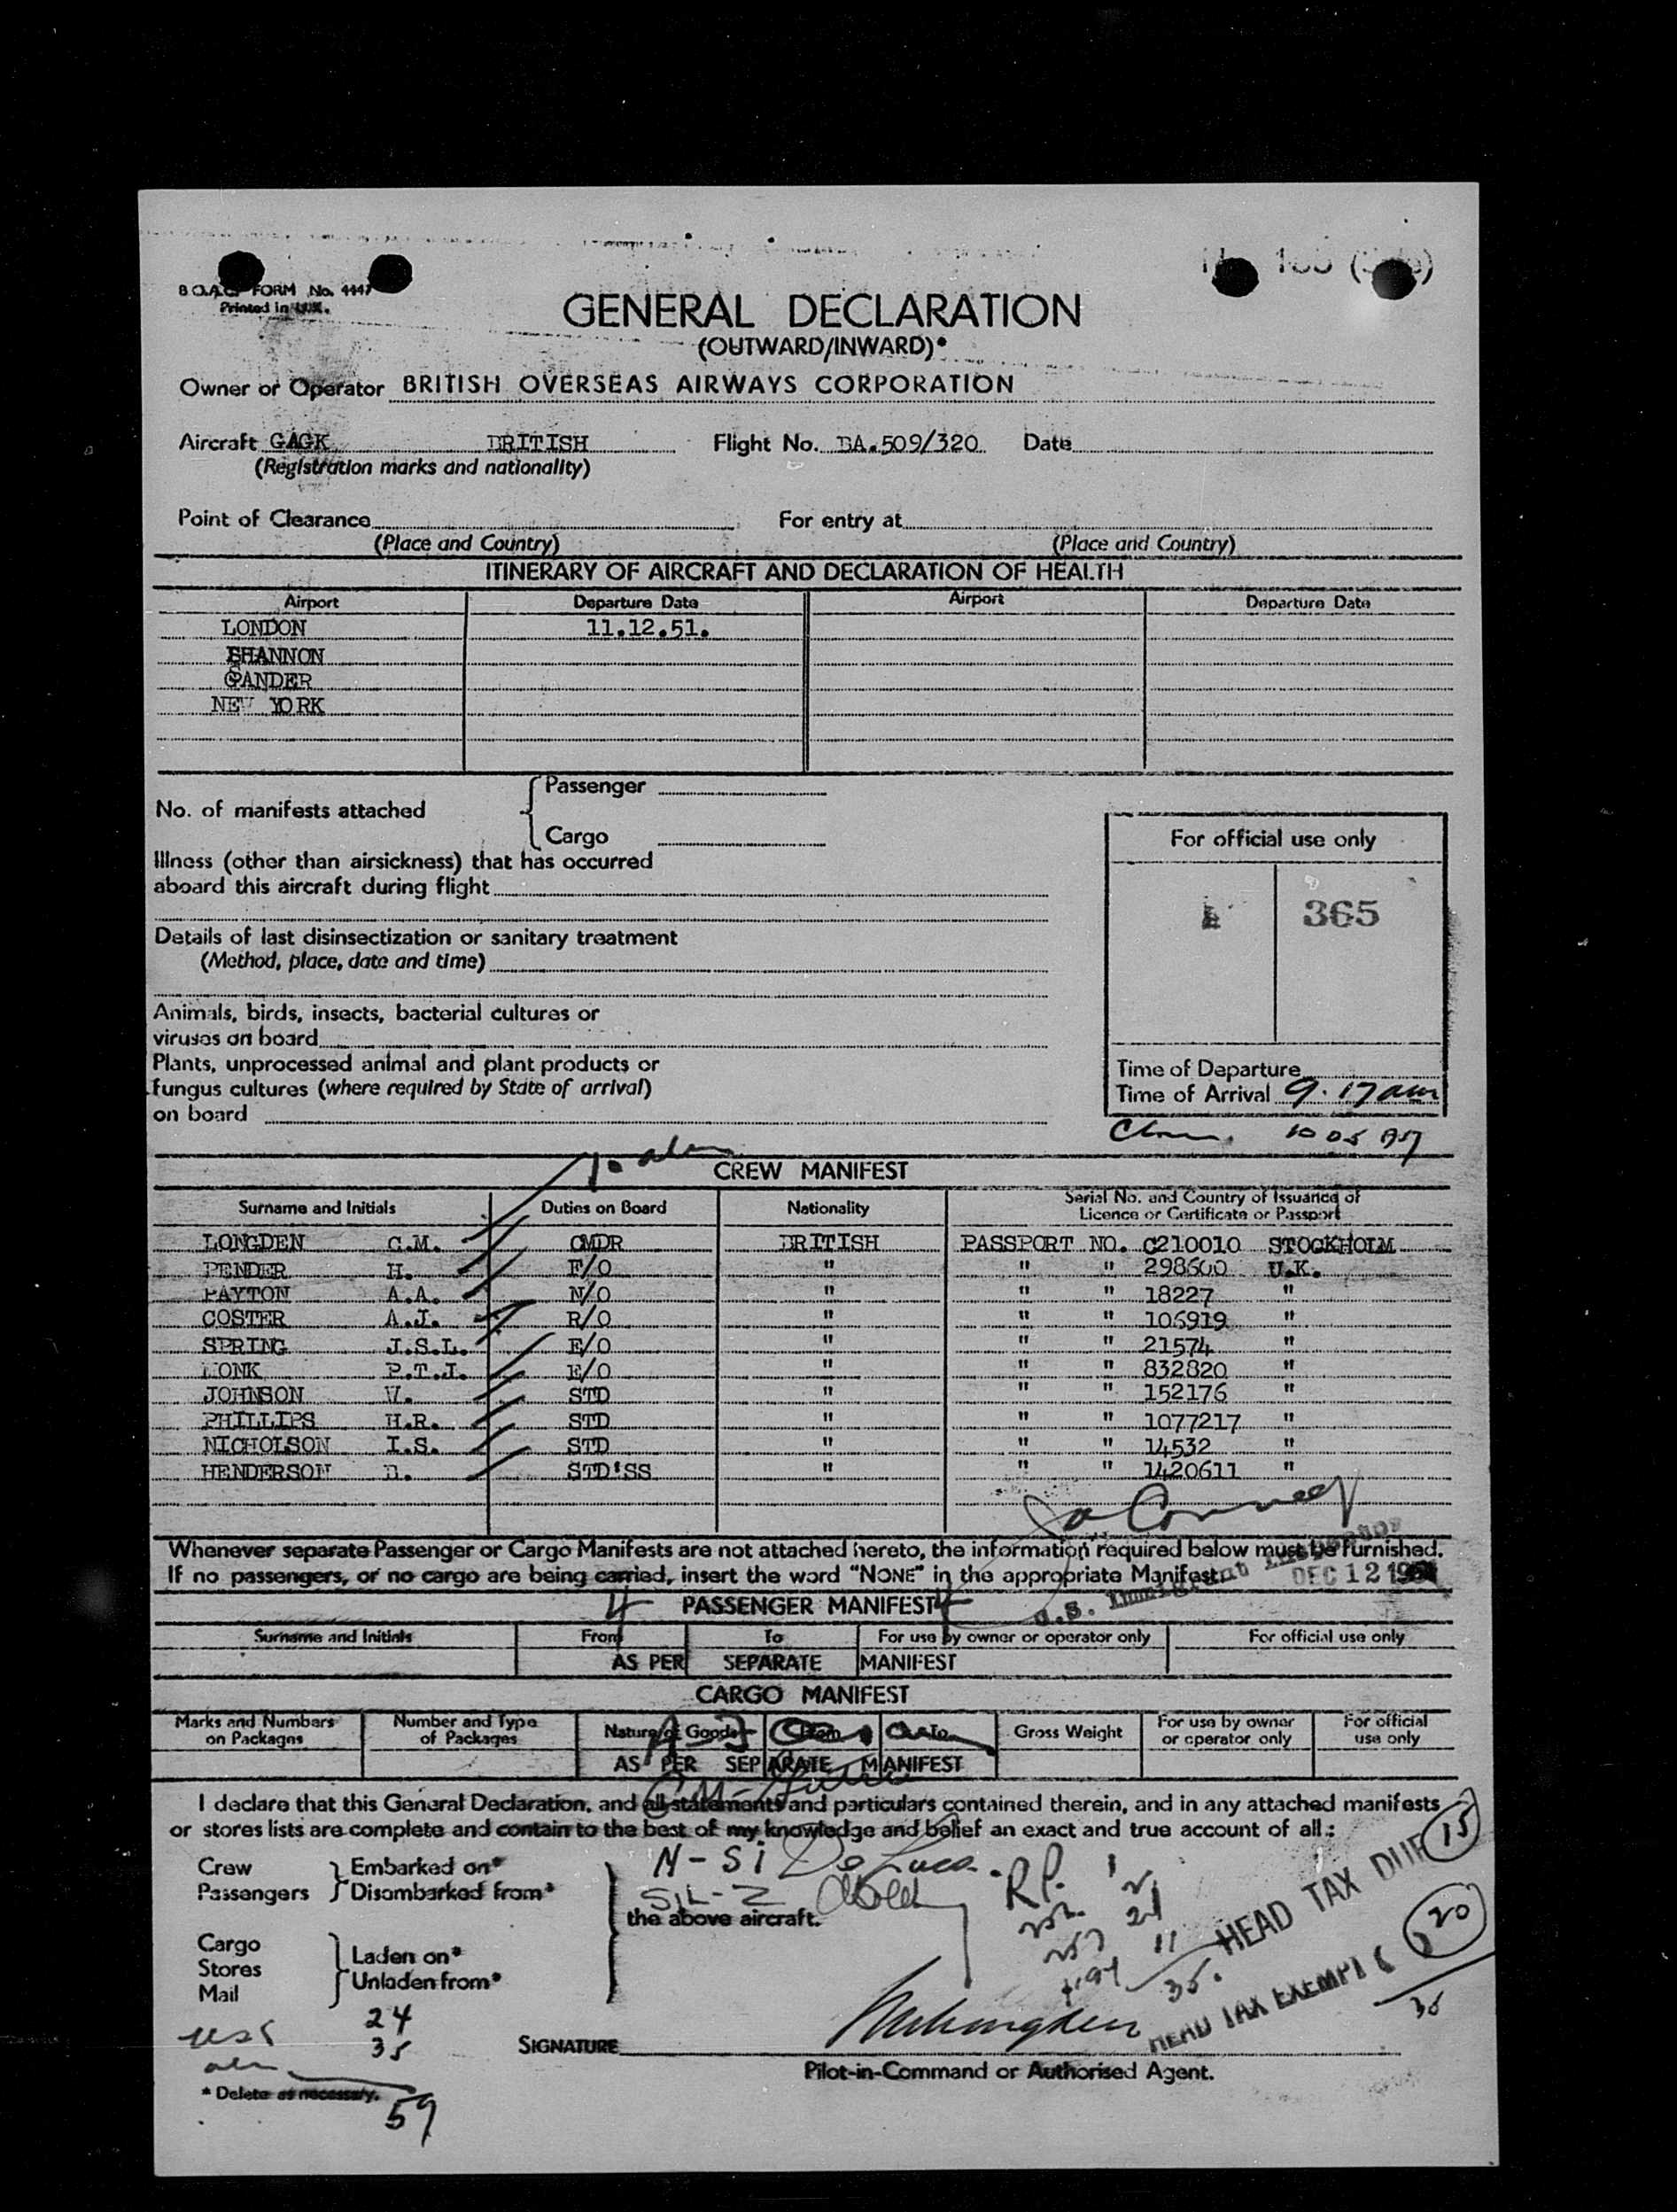 B.O.A.C. FORM No. 4447
Printed in U.K.
GENERAL DECLARATION
(OUTWARD/INWARD)*
Owner or Operator BRITISH OVERSEAS AIRWAYS CORPORATION
Aircraft GAGK BRITISH Flight No. BA.509/320 Date
(Registration marks and nationality)
Point of Clearance For entry at
(Place and Country) (Place and Country)
ITINERARY OF AIRCRAFT AND DECLARATION OF HEALTH
Airport Departure Date Airport Departure Date
LONDON 11.12.51.
SHANNON
GANDER
NEW YORK
Passenger
No. of manifests attached
Cargo
For official use only
Illness (other than airsickness) that has occurred
aboard this aircraft during flight
365
Details of last disinsectization or sanitary treatment
(Method, place, date and time)
Animals, birds, insects, bacterial cultures or
viruses on board
Plants, unprocessed animal and plant products or
fungus cultures (where required by State of arrival)
on board
Time of Departure
Time of Arrival 9.17am
10 05
10 alm
CREW MANIFEST
Surname and Initials Duties on Board Nationality Serial No. and Country of Issuance of
Licence or Certificate or Passport
LONGDEN C.M. CMDR BRITISH PASSPORT NO. C210010 STOCKHOLM
PENDER H. F/O " " " 298600 U.K.
PAYTON A.A. N/O " " " 18227 "
COSTER A.J. R/O " " " 106919 "
SPRING J.S.L. E/O " " " 21574 "
MONK P.T.J. E/O " " " 832820 "
JOHNSON W. STD " " " 152176 "
PHILLIPS H.R. STD " " " 1077217 "
NICHOLSON I.S. STD " " " 14532 "
HENDERSON STD'SS " " " 1420611 "
Whenever separate Passenger or Cargo Manifests are not attached hereto, the information required below must be furnished.
If no passengers, or no cargo are being carried, insert the word "NONE" in the appropriate Manifest.
U.S. Immigrant Inspector
DEC 12 1951
4 PASSENGER MANIFEST 4
Surname and Initials From To For use by owner or operator only For official use only
AS PER SEPARATE MANIFEST
CARGO MANIFEST
Marks and Numbers on Packages Number and Type of Packages Nature of Goods From To Gross Weight For use by owner or operator only For official use only
AS PER SEPARATE MANIFEST
I declare that this General Declaration, and all statements and particulars contained therein, and in any attached manifests
or stores lists are complete and contain to the best of my knowledge and belief an exact and true account of all:
Crew Embarked on*
Passengers Disembarked from*
N-Si De Luca
SiL-Z
the above aircraft.
R.P. 1
24
11
35
HEAD TAX DUE 15
HEAD TAX EXEMPT 20
35
Cargo
Stores Laden on*
Mail Unladen from*
24
35
59
SIGNATURE
Pilot-in-Command or Authorised Agent.
* Delete as necessary.